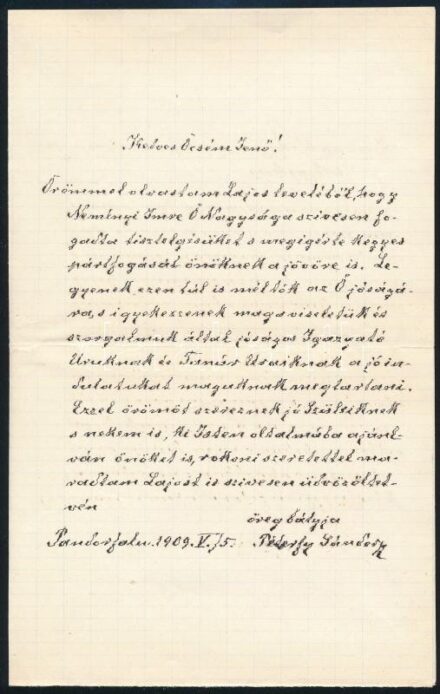 Kedves Öcsém Jenő!
Örömmel olvastam Lajos leveléből, hogy
Neményi Imre Ő Nagysága szivesen fo-
gadta tisztelgésüket s megigérte kegyes
pártfogását önöknek a jövőre is. Le-
gyenek ezen túl is méltók az Ő jóságá-
ra s igyekezzenek magaviseletük és
szorgalmuk által jóságos Igazgató
Uruknak és Tanár Uraiknak a jóin-
dulatukat maguknak megtartani.
Ezzel örömöt szereznek jó Szüleiknek
s nekem is, ki Isten oltalmába ajánl-
ván önöket is, rokoni szeretettel ma-
radtam Lajost is szivesen üdvözölvet-
vén
öreg bátyja
Pandorfalu. 1909. V./5. Péterfy Sándor